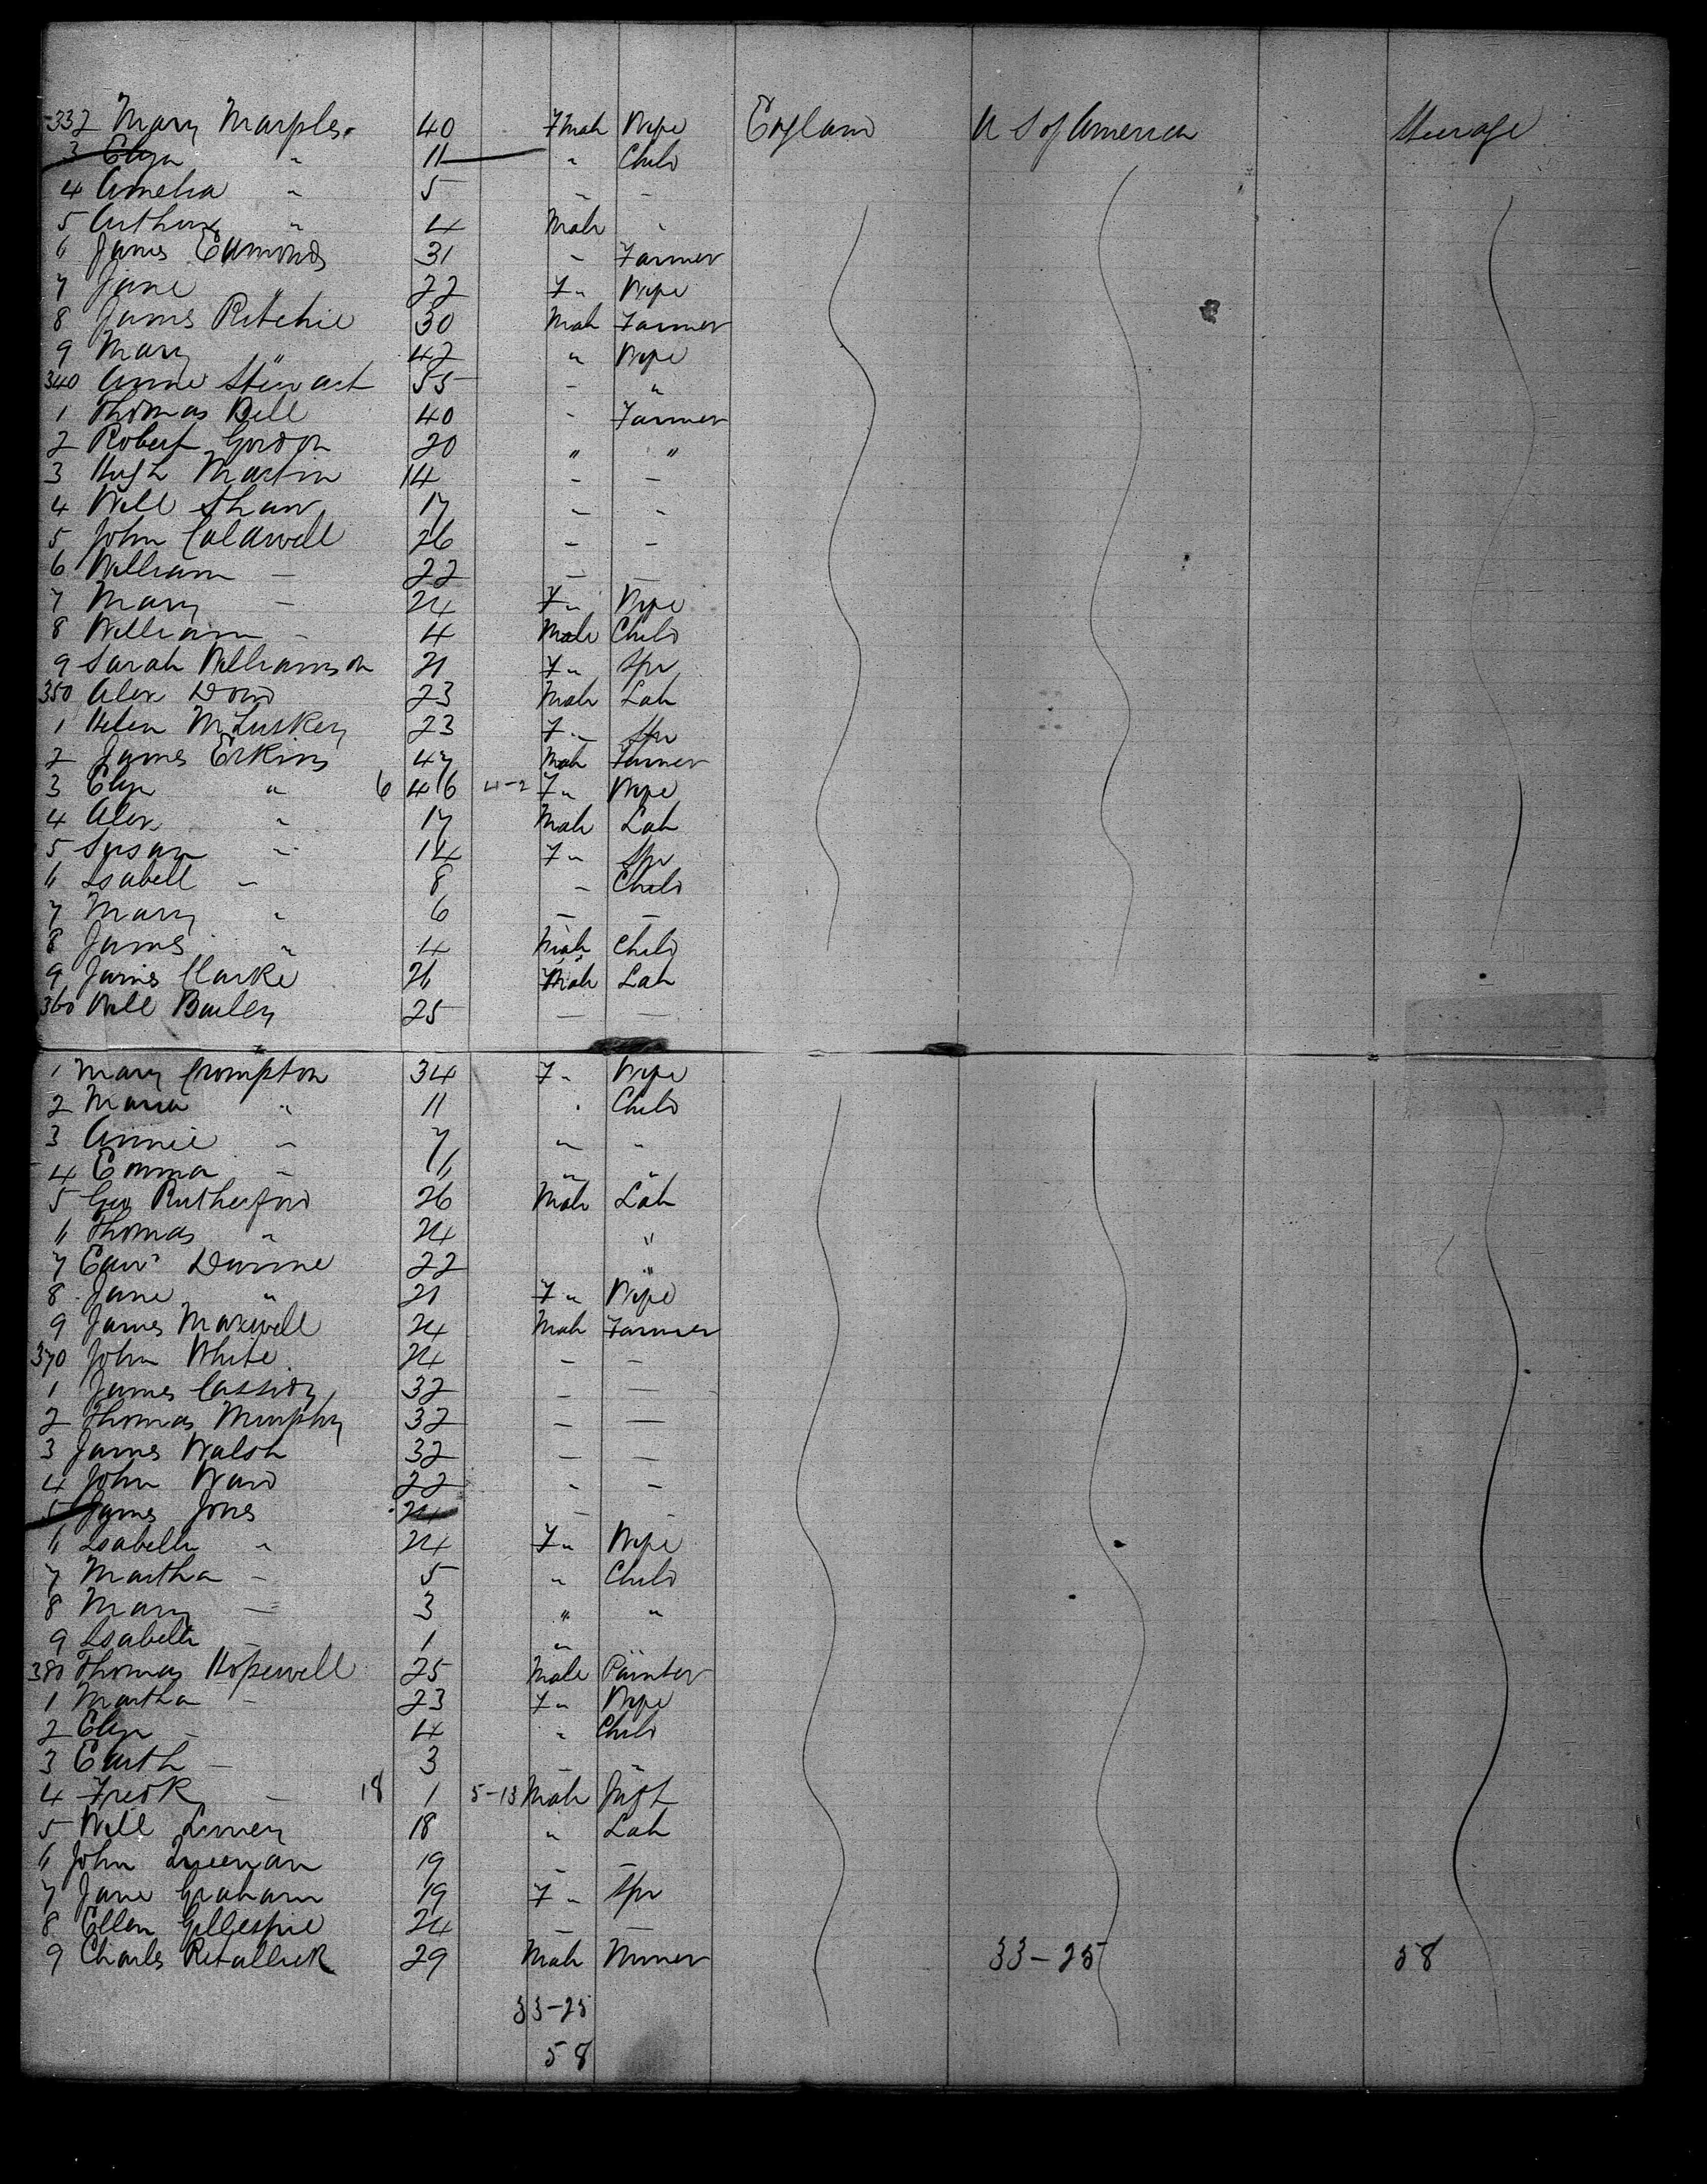 332 Mary Marples 40 Fmale Wife England U S of America Steerage
3 Eliza " 11 " Child
4 Amelia " 5 - -
5 Arthur " 4 Male "
6 James Edmonds 31 - Farmer
7 Jane " 22 F " Wife
8 James Ritchie 30 Male Farmer
9 Mary " 42 " Wife
340 Anne Stewart 55 - "
1 Thomas Bell 40 - Farmer
2 Robert Gordon 20 " "
3 Hugh Martin 14 - -
4 Will Shaw 17 - -
5 John Caldwell 26 - -
6 William - 22 - -
7 Mary - 24 F " Wife
8 William - 4 Male Child
9 Sarah Williamson 21 F " Spr
350 Alex Dowd 23 Male Lab
1 Helen McLuskey 23 F " Spr
2 James Erkins 47 Male Farmer
3 Eliza " 6 46 4-2 F " Wife
4 Alex " 17 Male Lab
5 Susan " 14 F " Spr
6 Isabell - 8 - Child
7 Mary " 6 - -
8 James " 4 Male Child
9 James Clarke 26 Male Lab
360 Will Bailey 25 - -
1 Mary Crompton 34 F " Wife
2 Maria " 11 " Child
3 Annie - 7 " "
4 Emma - 6 " "
5 Geo Rutherford 26 Male Lab
6 Thomas " 24 "
7 Edwd Dunne 22 "
8 Jane " 21 F " Wife
9 James Maxwell 24 Male Farmer
370 John White 24 - -
1 James Cassidy 32 - -
2 Thomas Murphy 32 - -
3 James Walsh 32 - -
4 John Ward 22 - -
5 James Jones 24 - -
6 Isabella " 24 F " Wife
7 Martha - 5 " Child
8 Mary - 3 " "
9 Isabella - 1 "
380 Thomas Hopewell 25 Male Painter
1 Martha - 23 F " Wife
2 Eliza - 4 " Child
3 Edith - 3 - "
4 Fredk - 18 1 5-13 Male Inft
5 Will 18 " Lab
6 John 19 - -
7 Jane Graham 19 F " Spr
8 Ellen Gillespie 24 - -
9 Charles Retallick 29 Male Miner 33-25 58
33-25
58